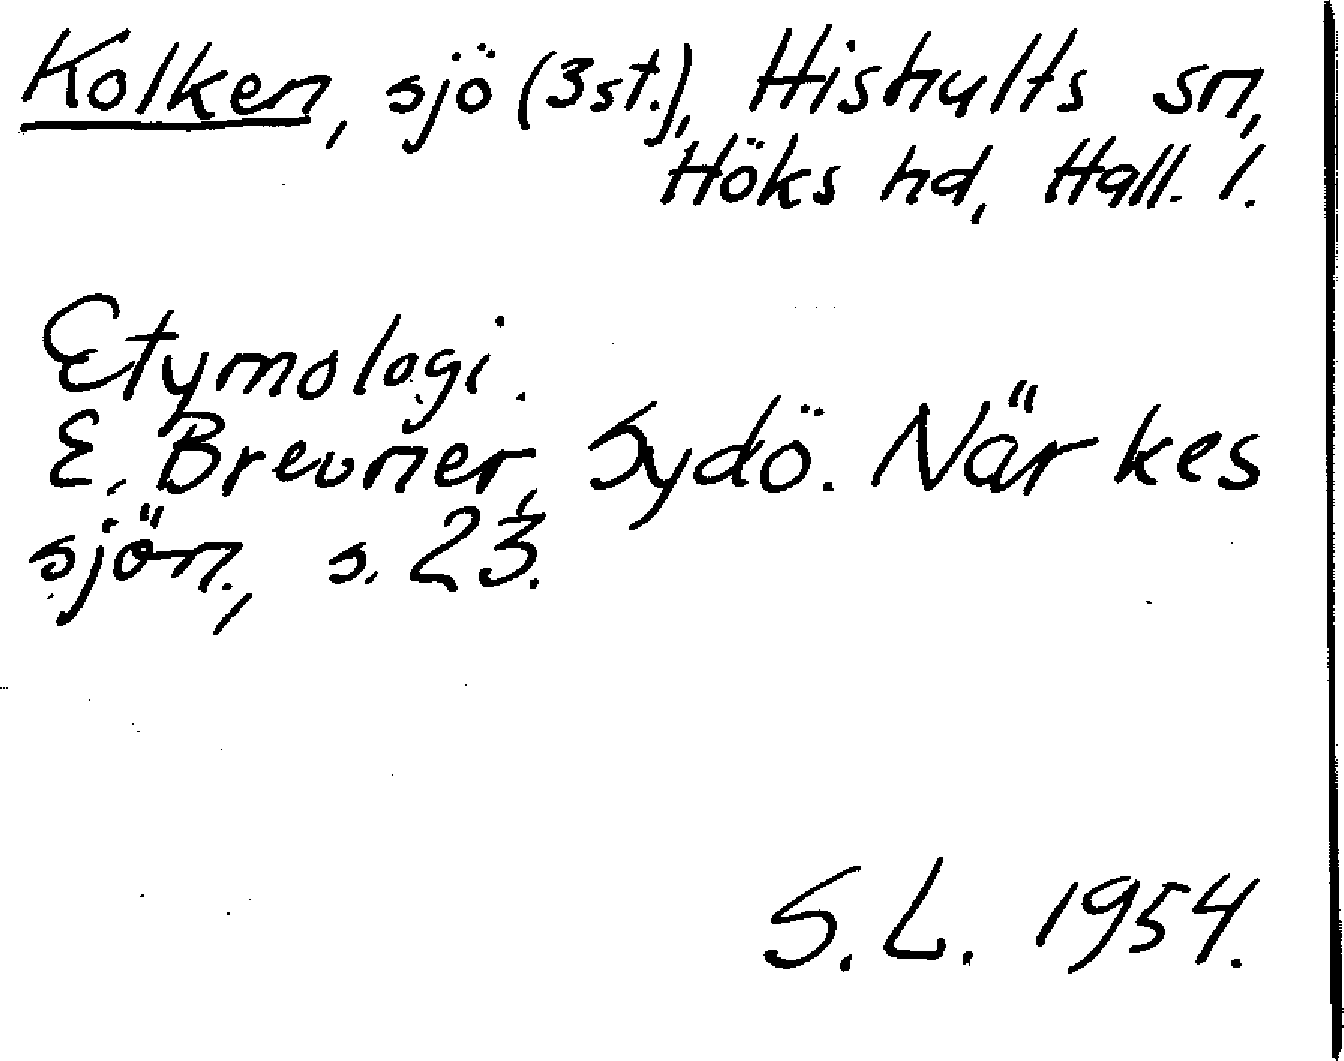 Kolken, sjö (3st.), Hishults sn,
Höks hd, Hall. l.
Etymologi.
E. Brevner, Sydö. Närkes
sjön., s. 23.
S. L. 1954.